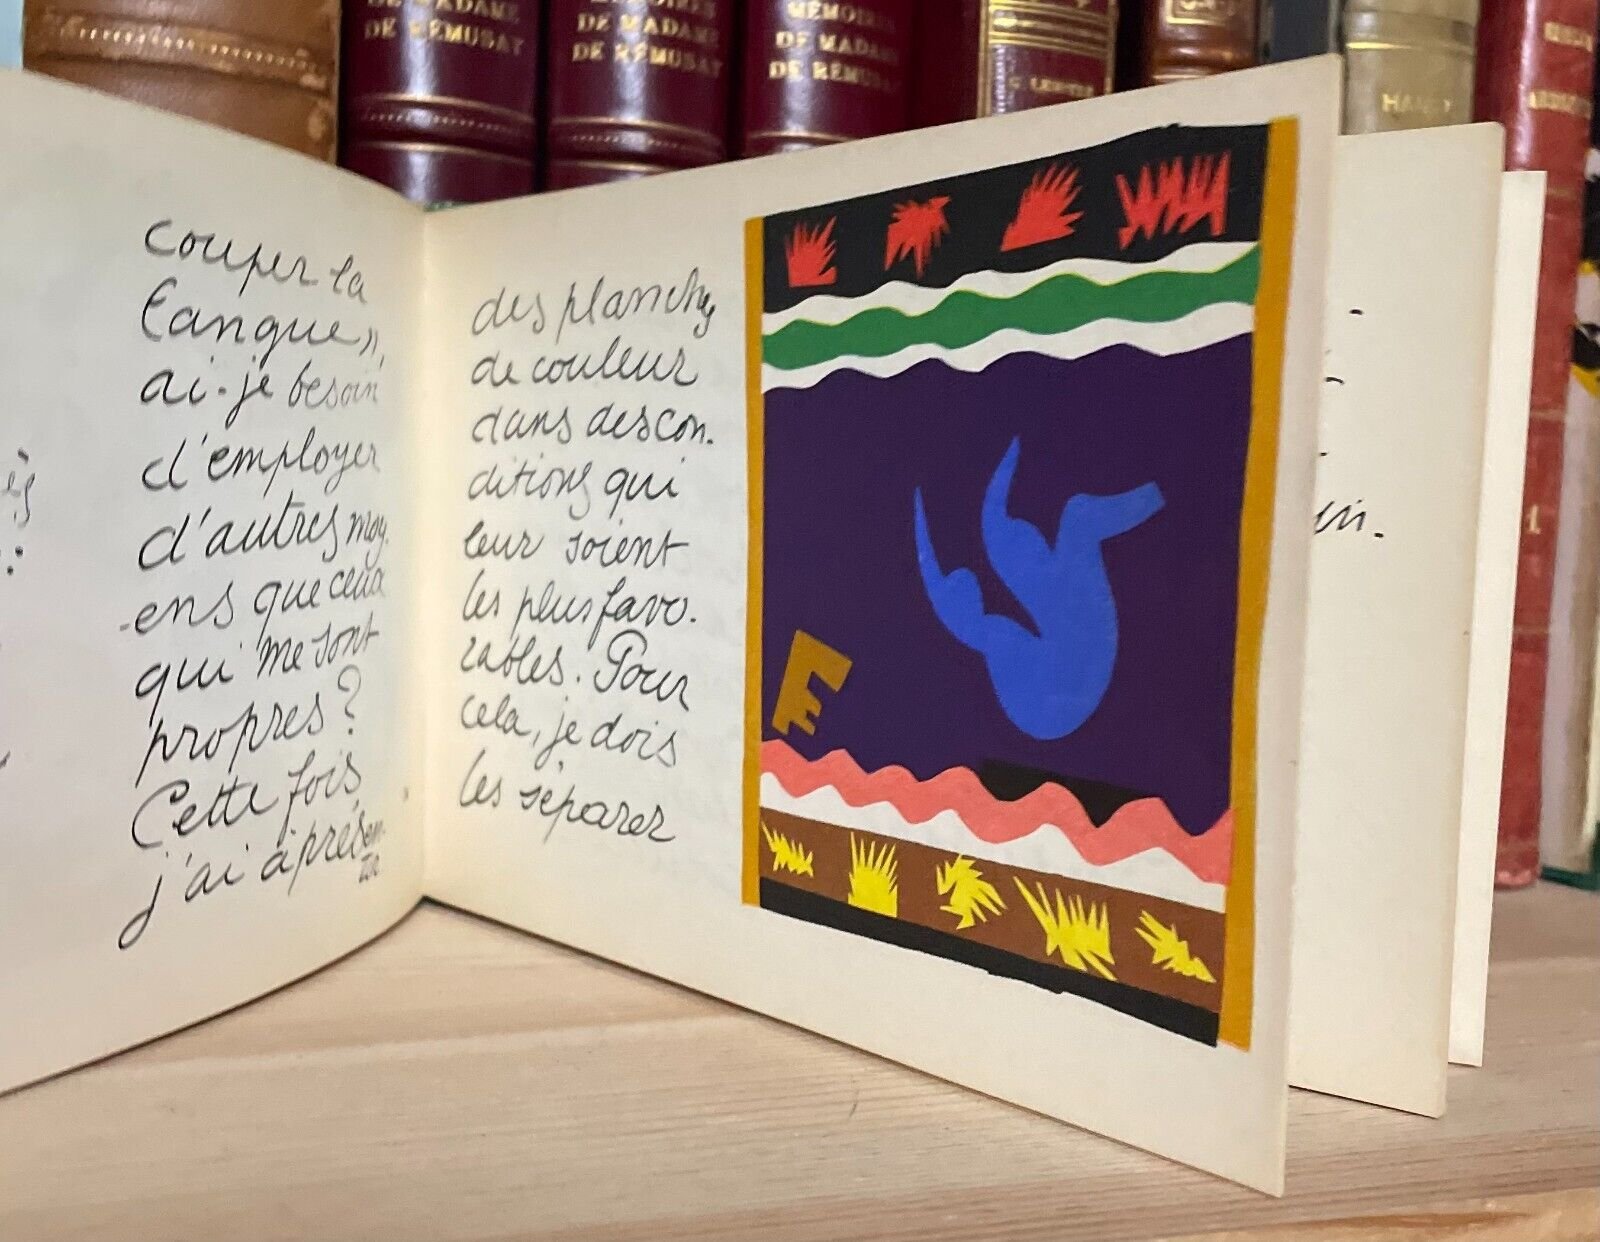 DE MADAME
DE RÉMUSAT
MÉMOIRES
DE MADAME
DE RÉMUSAT
MÉMOIRES
DE MADAME
DE RÉMUSAT
couper la
langue»,
ai-je besoin
d'employer
d'autres moy.
-ens que ceux
qui me sont
propres?
Cette fois
j'ai à présen-
ter
des planches
de couleur
dans des con.
ditions qui
leur soient
les plus favo.
rables. Pour
cela, je dois
les séparer
1